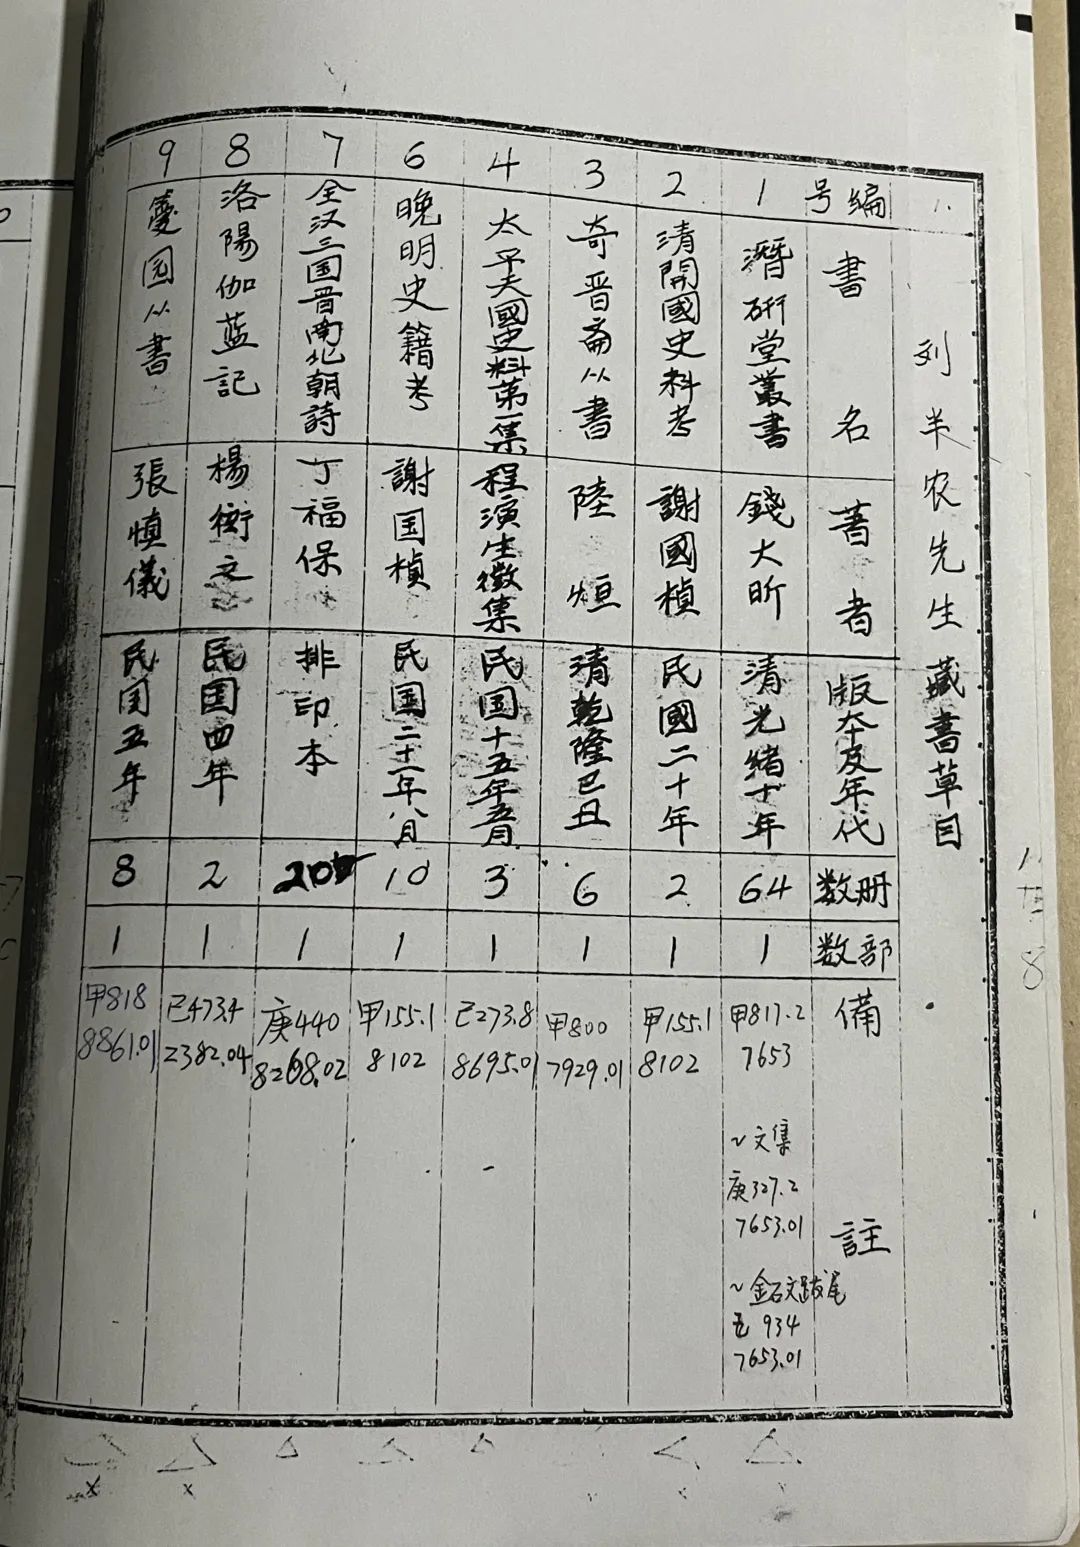 刘半农先生藏書草目
編号
書名
著者
版本及年代
册数
部数
備註
1
潛研堂叢書
錢大昕
清光緒十年
64
1
甲817.2
7653
~文集
庚327.2
7653.01
~金石文跋尾
7653.01
2
清開國史料考
謝國楨
民國二十年
2
1
甲155.1
8102
3
奇晋斎从書
陸烜
清乾隆己丑
6
1
甲800
7929.01
4
太平天國史料第一集
程演生徵集
民国十五年五月
3
1
己273.8
8695.01
6
晚明史籍考
謝国楨
民国二十一年八月
10
1
甲155.1
8102
7
全汉三国晋南北朝詩
丁福保
排印本
20
1
庚440
8268.02
8
洛陽伽蓝記
楊衒之
民国四年
2
1
己473.4
2382.04
9
园从書
張慎儀
民国五年
8
1
甲818
8861.01